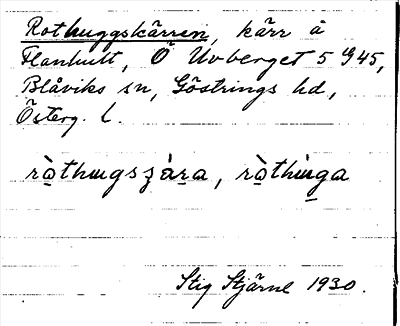 Rothuggskärren, kärr å
Flanhult, Ö Uvberget 5 G 45,
Blåviks sn, Göstrings hd,
Österg. l.
ròthugsʒára, ròthùga
Stig Stjärne 1930.